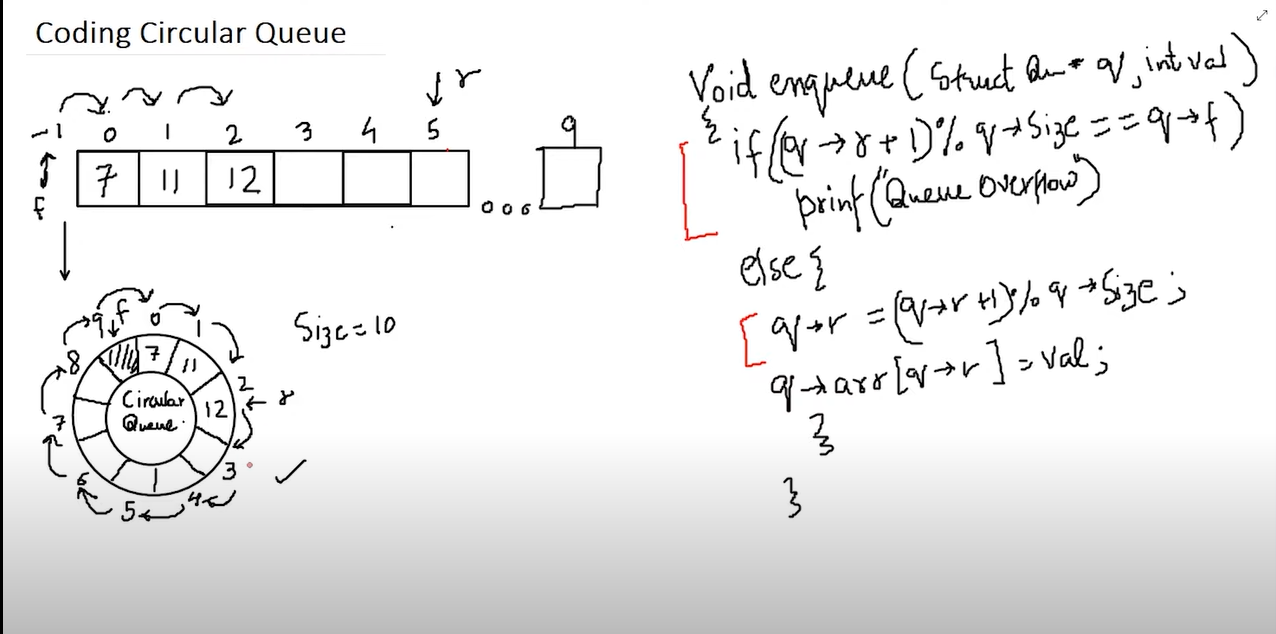 Coding Circular Queue
r
-1 0 1 2 3 4 5 9
7 11 12
f
Size = 10
9 f 0 1
8 7 11
2
Circular 12 r
Queue
7
3
6 4
5
Void enqueue(Struct Qu* q, int val)
{ if((q→r+1)% q→Size == q→f)
print("Queue Overflow")
else {
q→r = (q→r+1)% q→Size;
q→arr[q→r] = val;
}
}